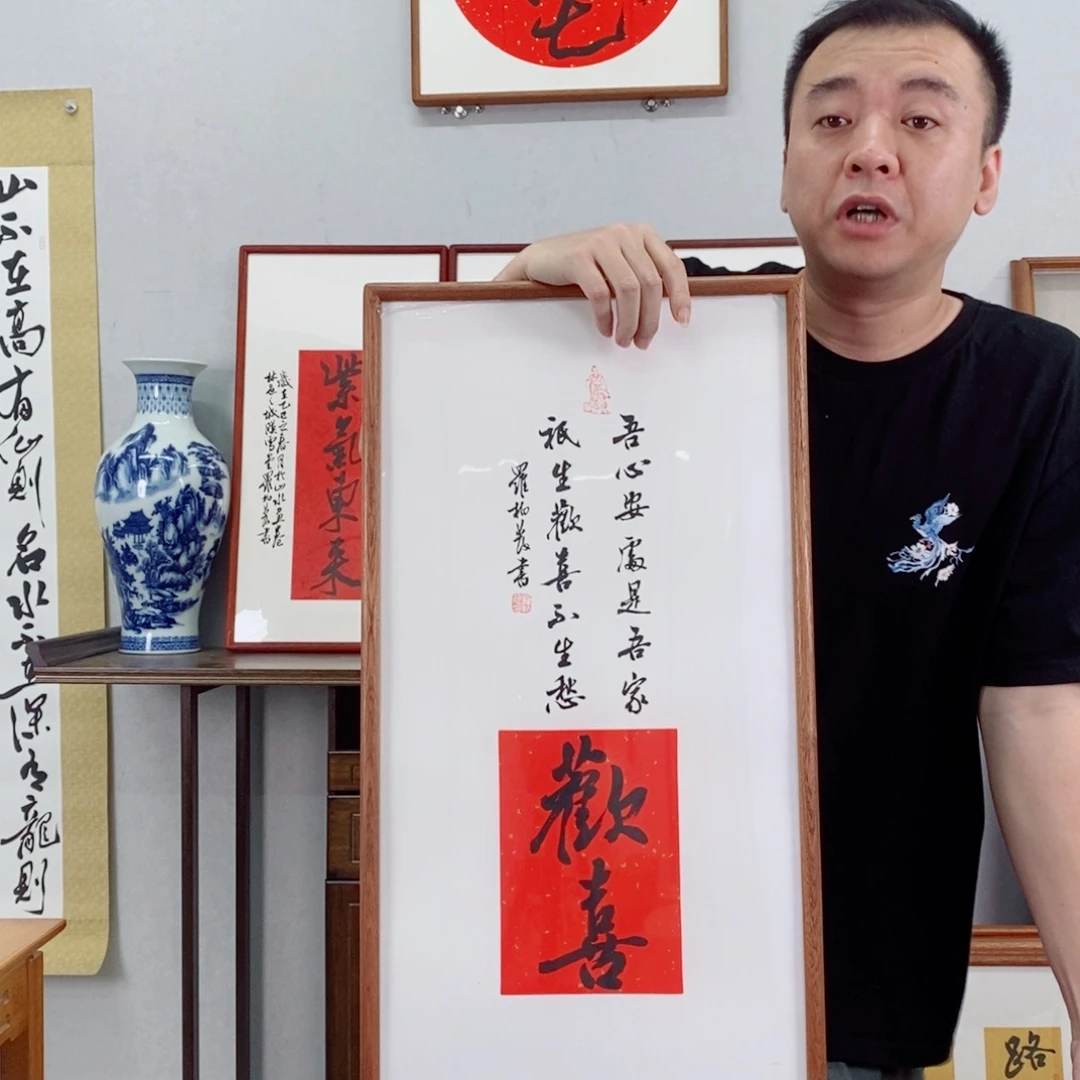 吾心安處是吾家
祇生歡喜不生愁
羅柏茂書
歡喜
紫氣東来
山不在高有仙則名水不在深有龍則
路